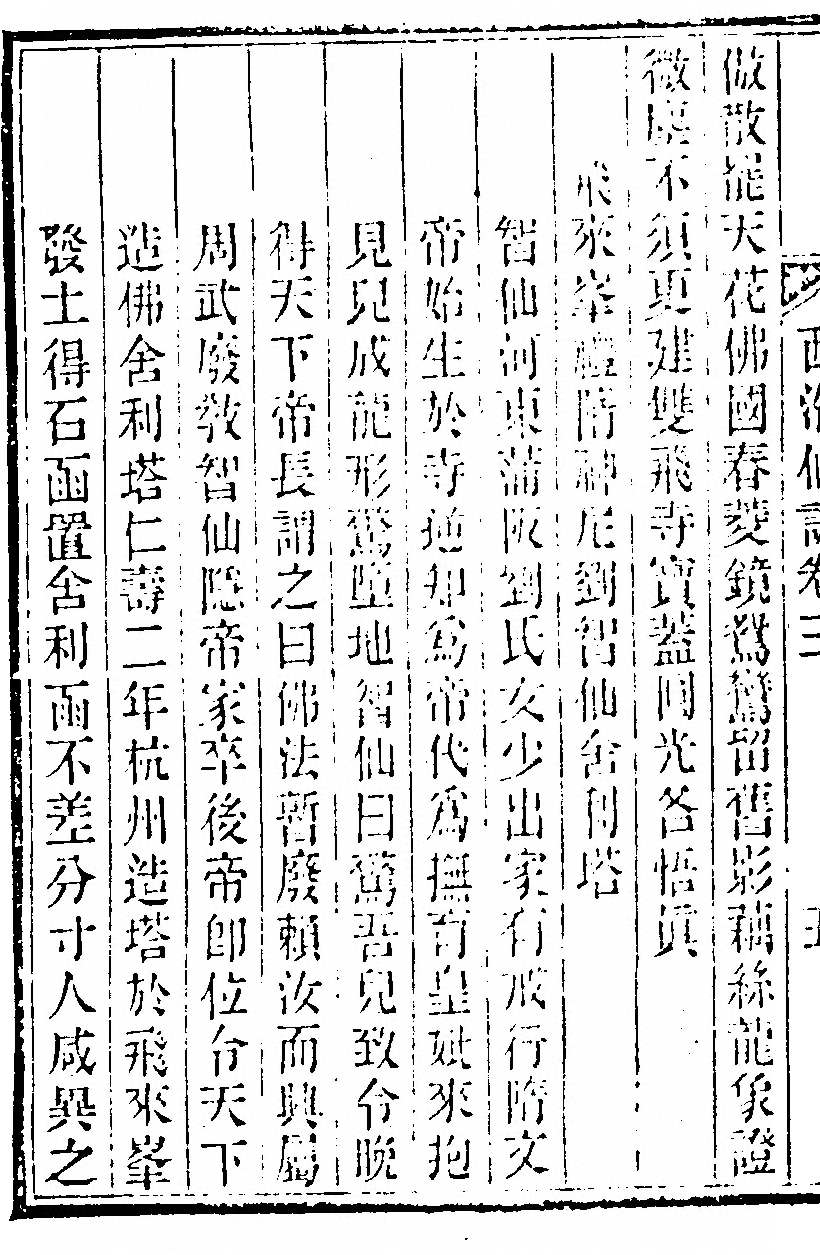 西湖仙詠卷三
五
傲散罷天花佛國春菱鏡鴛鴦留舊影藕絲龍象證
微塵不須更建雙飛寺寶蓋圓光各悟眞
飛來峯禮隋神尼劉智仙舍利塔
智仙河東蒲阪劉氏女少出家有戒行隋文
帝始生於寺尼為帝代爲撫育皇妣來抱
見兒成龍形驚墮地智仙曰驚吾兒致令晚
得天下帝長謂之曰佛法暫廢賴汝而興屬
周武廢敎智仙隱帝家卒後帝卽位令天下
造佛舍利塔仁壽二年杭州造塔於飛來峯
發土得石函置舍利函不差分寸人咸異之